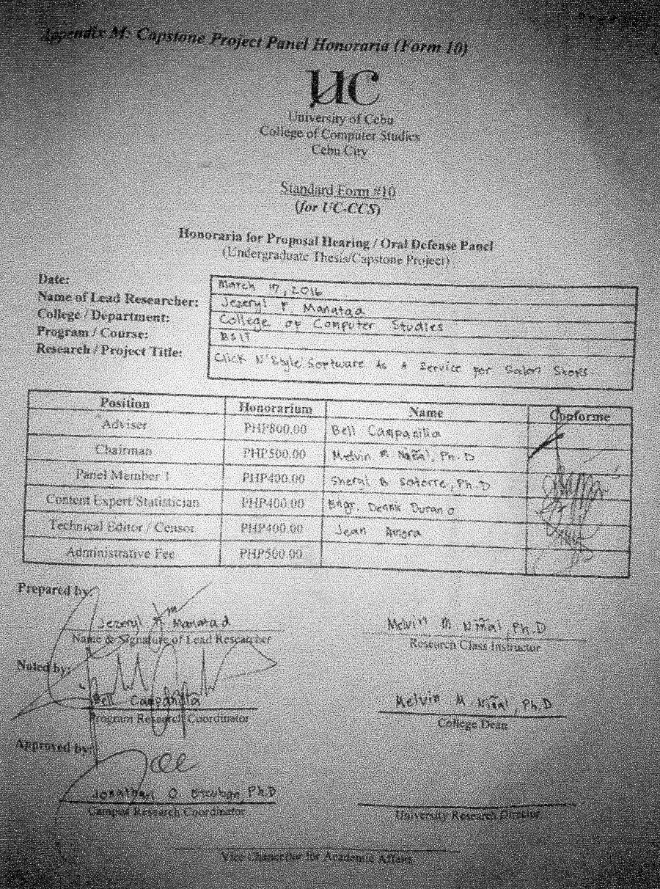 Appendix M: Capstone Project Panel Honoraria (Form 10)
UC
University of Cebu
College of Computer Studies
Cebu City
Standard Form #10
(for UC-CCS)
Honoraria for Proposal Hearing / Oral Defense Panel
(Undergraduate Thesis/Capstone Project)
Date: March 17, 2016
Name of Lead Researcher: Jezeryl F Manatad
College / Department: College of Computer Studies
Program / Course: BSIT
Research / Project Title: Click N'Style Software As A Service for Salon Shops
Position Honorarium Name Conforme
Adviser PHP800.00 Bell Campanilla
Chairman PHP500.00 Melvin M Niñal, Ph.D
Panel Member 1 PHP400.00 Sheral B Satorre, Ph.D
Content Expert/Statistician PHP400.00 Engr. Dennis Durano
Technical Editor / Censor PHP400.00 Jean Amora
Administrative Fee PHP500.00
Prepared by:
Jezeryl F Manatad Melvin M Niñal, Ph.D
Name & Signature of Lead Researcher Research Class Instructor
Noted by:
Bell Campanilla Melvin M. Niñal, Ph.D
Program Research Coordinator College Dean
Approved by:
Jonathan O Ph.D
Campus Research Coordinator University Research Director
Vice Chancellor for Academic Affairs